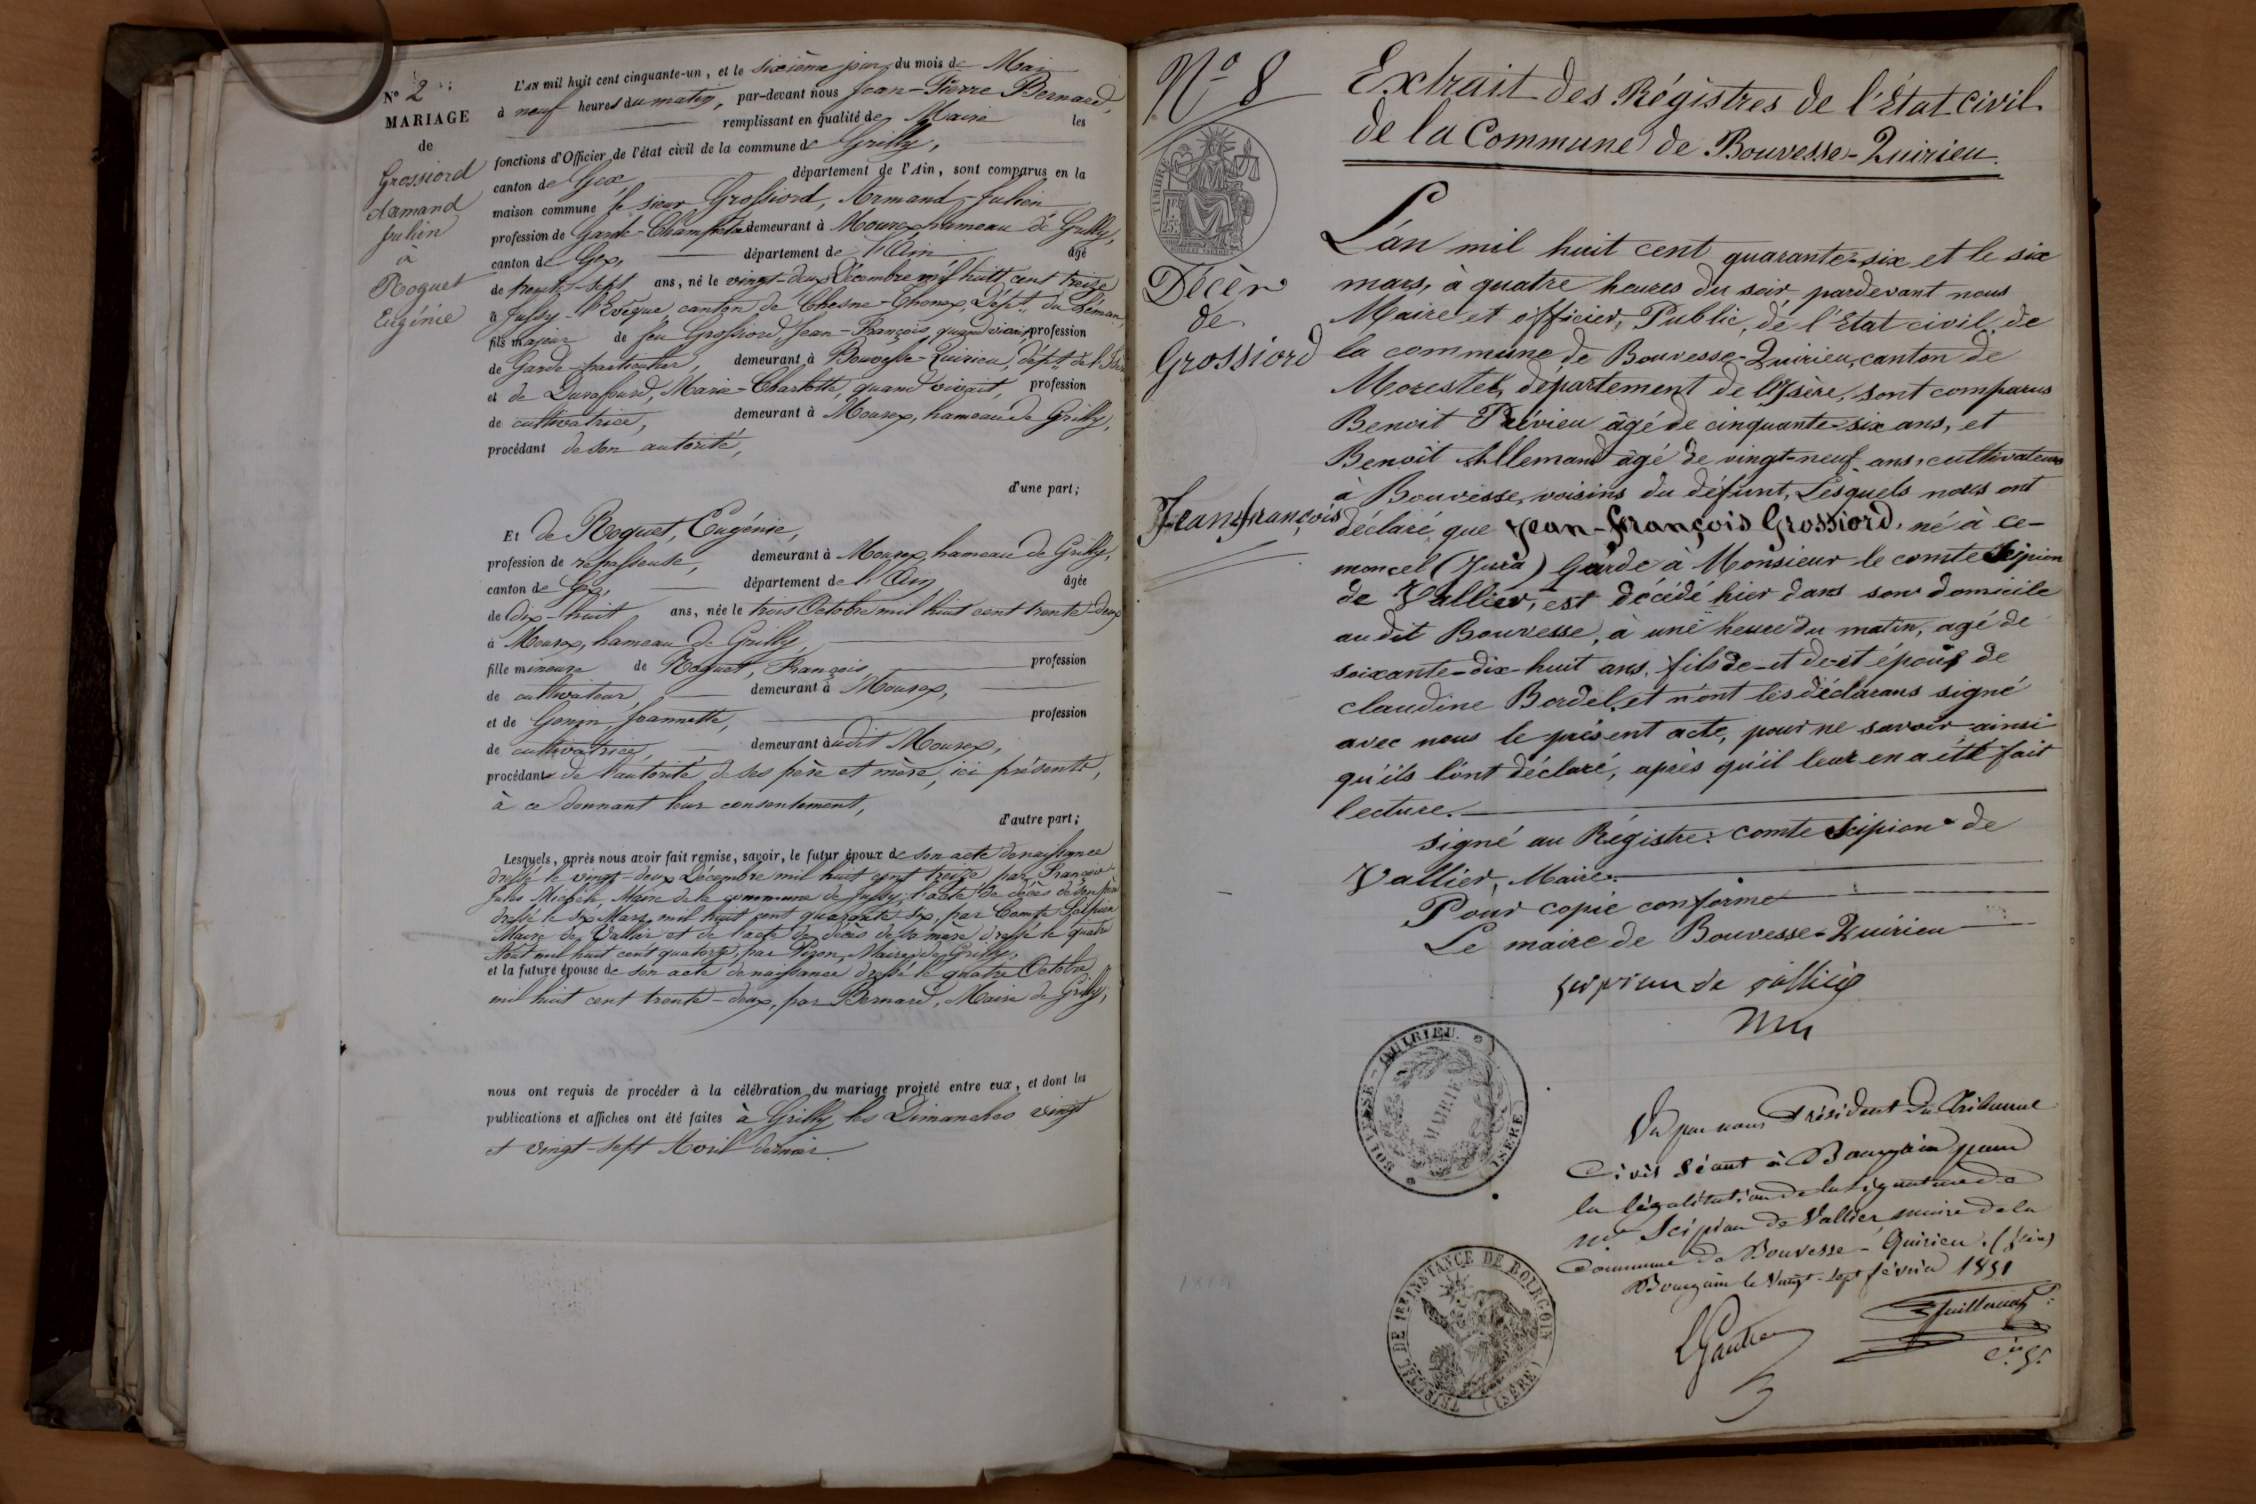 N° 2
MARIAGE
de
Grossiord
Armand
Julien
à
Roguet
Eugénie
L'AN mil huit cent cinquante-un, et le sixième jour du mois de Mai
à neuf heures du matin, par-devant nous Jean-Pierre Bernard,
remplissant en qualité de Maire les
fonctions d'Officier de l'état civil de la commune de Grilly,
canton de Gex département de l'Ain, sont comparus en la
maison commune le sieur Grossiord, Armand-Julien
profession de Garde-Champêtre demeurant à Mourex hameau de Grilly,
canton de Gex, département de l'Ain âgé
de trente-sept ans, né le vingt-deux Décembre mil huit cent treize
à Jussy-l'Evêque, canton de Chesne-Thonex, Dépt. du Léman,
fils majeur de feu Grossiord, Jean-François, quand vivait, profession
de Garde-particulier, demeurant à Bouvesse-Quirieu, dépt. de l'Isère
et de Durafourd, Marie-Charlotte, quand vivait, profession
de cultivatrice, demeurant à Mourex, hameau de Grilly,
procédant de son autorité,
d'une part;
Et de Roguet, Eugénie,
profession de repasseuse, demeurant à Mourex, hameau de Grilly,
canton de Gex, département de l'Ain âgée
de dix-huit ans, née le trois Octobre mil huit cent trente-deux
à Mourex, hameau de Grilly
fille mineure de Roguet, François, profession
de cultivateur, demeurant à Mourex,
et de Gonin, Jeannette, profession
de cultivatrice, demeurant audit Mourex,
procédant de l'autorité de ses père et mère, ici présents,
à ce donnant leur consentement,
d'autre part;
Lesquels, après nous avoir fait remise, savoir, le futur époux de son acte de naissance
dressé le vingt-deux Décembre mil huit cent treize, par François
Jules Maire de la commune de Jussy, l'acte de décès de son père
dressé le six Mars mil huit cent quarante six, par Comte Scipion
Maire de Vallier et de l'acte de décès de sa mère dressé le quatre
Aout mil huit cent quatorze, par Maire de Grilly,
et la future épouse de son acte de naissance dressé le quatre Octobre
mil huit cent trente-deux, par Bernard, Maire de Grilly,
nous ont requis de procéder à la célébration du mariage projeté entre eux, et dont les
publications et affiches ont été faites à Grilly les Dimanches vingt
et vingt-sept Avril dernier.
N° 8
TIMBRE
Décès
de
Grossiord
Jean françois
Extrait des Régistres de l'Etat civil
de la Commune de Bouvesse-Quirieu.
L'an mil huit cent quarante-six et le six
mars, à quatre heures du soir pardevant nous
Maire et officier, Public, de l'Etat civil de
la commune de Bouvesse-Quirieu, canton de
Morestel, département de l'Isère, sont comparus
Benoit Trévieu âgé de cinquante-six ans, et
Benoît Allemand âgé de vingt-neuf ans, cultivateurs
à Bouvesse, voisins du défunt, Lesquels nous ont
déclaré que Jean-françois Grossiord, né à ce-
moncel (Jura) Garde à Monsieur le comte Scipion
de Vallier, est décédé hier dans son domicile
audit Bouvesse, à une heure du matin, agé de
soixante-dix-huit ans, fils de et de et époux de
claudine Bordel, et n'ont les déclarans signé
avec nous le présent acte, pour ne savoir ainsi
qu'ils l'ont déclaré, après qu'il leur en a été fait
lecture.
signé au Régistre: comte Scipion de
Vallier, Maire.
Pour copie conforme
Le maire de Bouvesse-Quirieu
scipion de vallier
BOUVESSE-QUIRIEU.
MAIRIE
(ISÈRE)
Vu par nous Président du Tribunal
Civil séant à Bourgoin pour
la légalisation de la signature de
Mr. Scipion de Vallier maire de la
Commune de Bouvesse-Quirieu. (Isère)
Bourgoin le vingt-sept février 1851
TRIBUNAL DE 1ERE INSTANCE DE BOURGOIN
(ISÈRE)